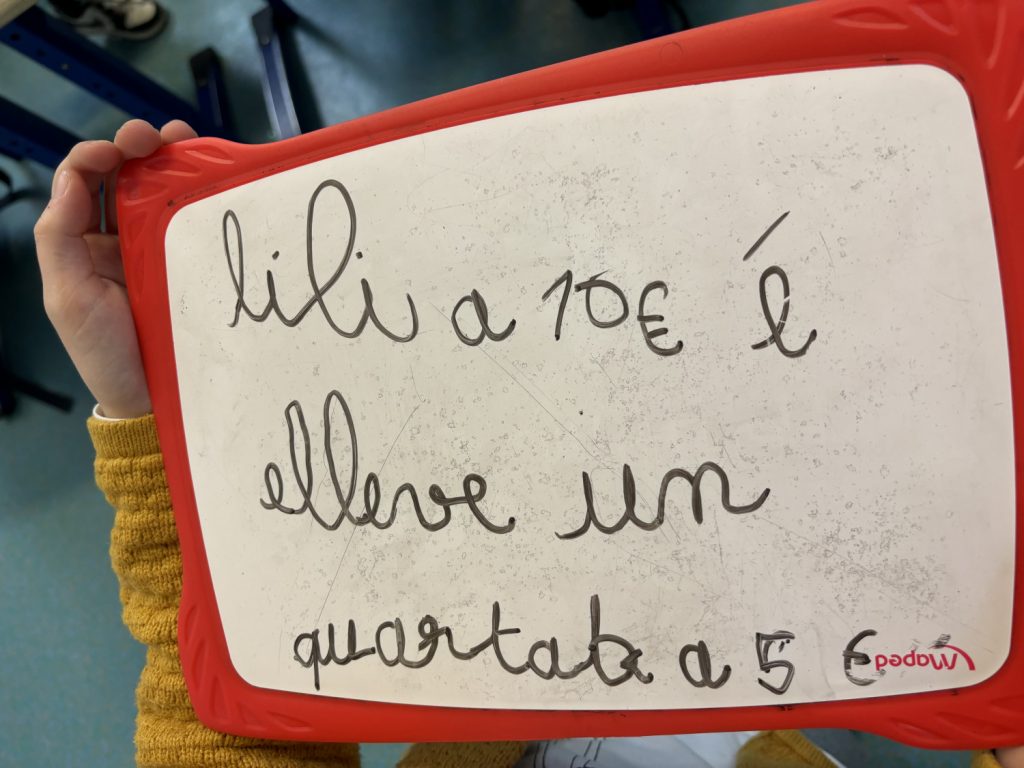 lili a 10€ é
elleve un
quartab a 5 €
Maped